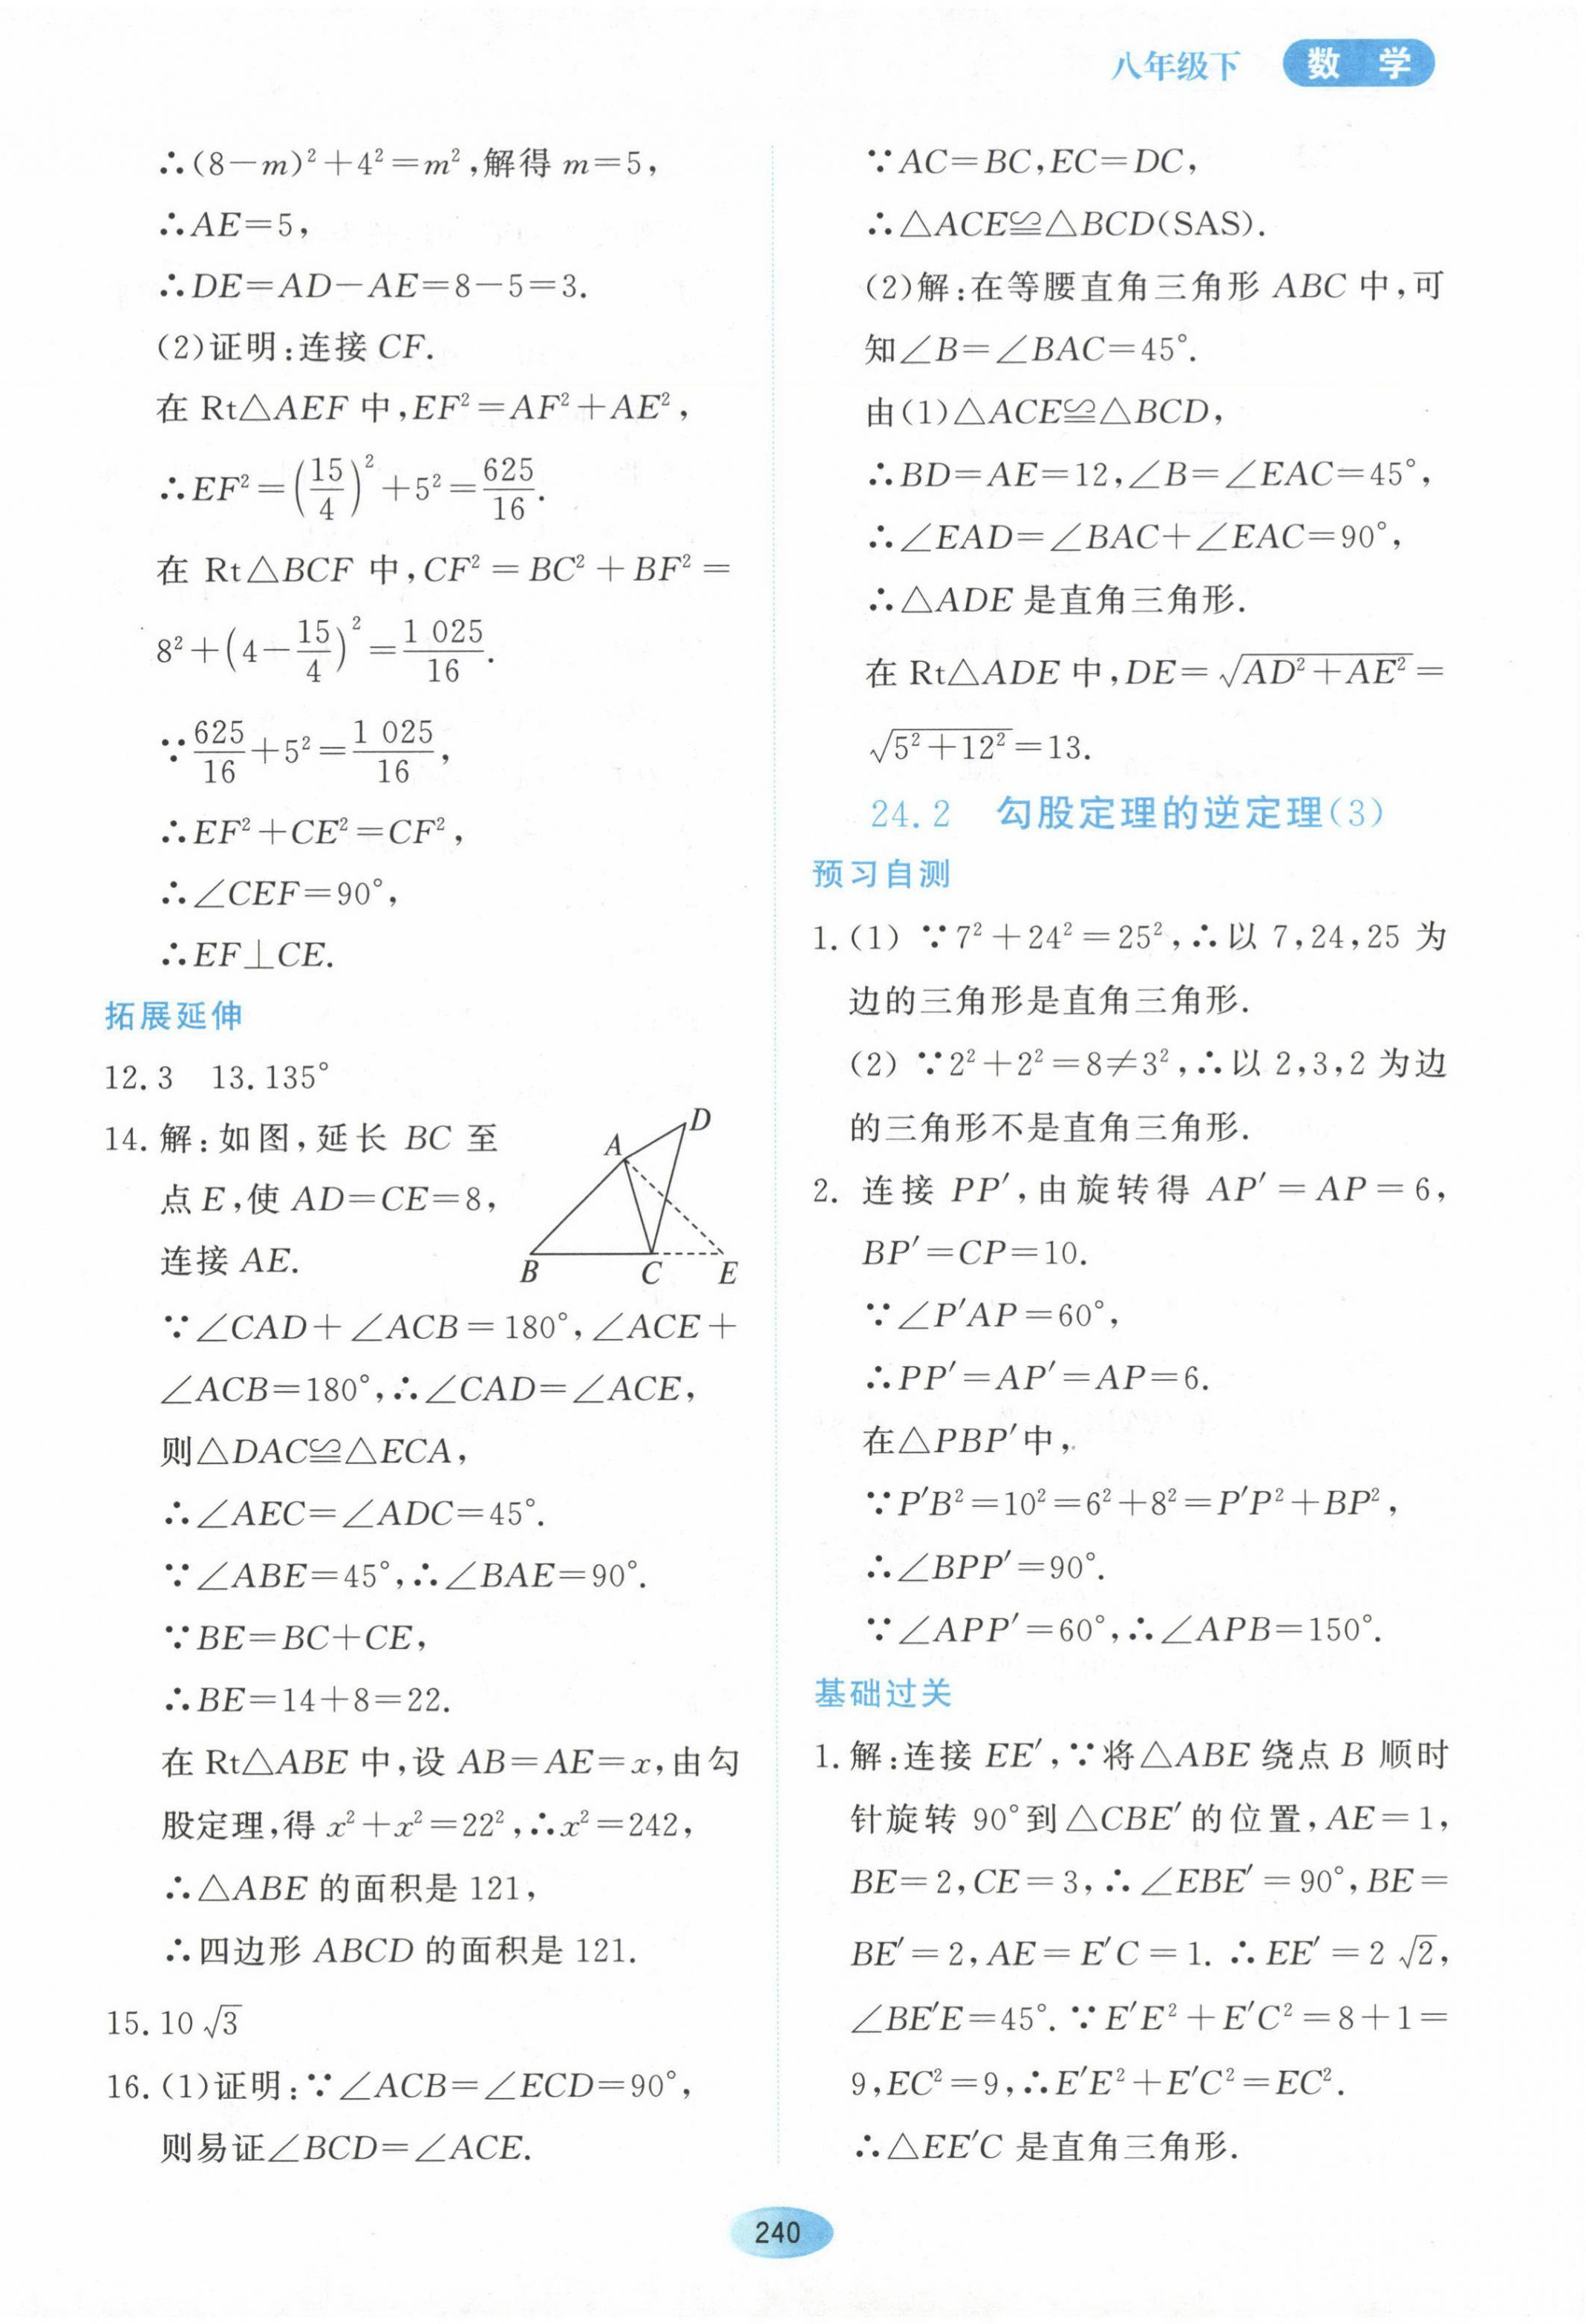 八年级下 数 学
∴(8－m)²＋4²＝m²,解得 m＝5,
∴AE＝5,
∴DE＝AD－AE＝8－5＝3.
(2)证明:连接 CF.
在 Rt△AEF 中,EF²＝AF²＋AE²,
∴EF²＝(15/4)²＋5²＝625/16.
在 Rt△BCF 中,CF²＝BC²＋BF²＝
8²＋(4－15/4)²＝1 025/16.
∵625/16＋5²＝1 025/16,
∴EF²＋CE²＝CF²,
∴∠CEF＝90°,
∴EF⊥CE.
拓展延伸
12.3 13.135°
14.解:如图,延长 BC 至
点 E,使 AD＝CE＝8,
连接 AE.
A
D
B
C
E
∵∠CAD＋∠ACB＝180°,∠ACE＋
∠ACB＝180°,∴∠CAD＝∠ACE,
则△DAC≌△ECA,
∴∠AEC＝∠ADC＝45°.
∵∠ABE＝45°,∴∠BAE＝90°.
∵BE＝BC＋CE,
∴BE＝14＋8＝22.
在 Rt△ABE 中,设 AB＝AE＝x,由勾
股定理,得 x²＋x²＝22²,∴x²＝242,
∴△ABE 的面积是 121,
∴四边形 ABCD 的面积是 121.
15.10√3
16.(1)证明:∵∠ACB＝∠ECD＝90°,
则易证∠BCD＝∠ACE.
∵AC＝BC,EC＝DC,
∴△ACE≌△BCD(SAS).
(2)解:在等腰直角三角形 ABC 中,可
知∠B＝∠BAC＝45°.
由(1)△ACE≌△BCD,
∴BD＝AE＝12,∠B＝∠EAC＝45°,
∴∠EAD＝∠BAC＋∠EAC＝90°,
∴△ADE 是直角三角形.
在 Rt△ADE 中,DE＝√(AD²＋AE²)＝
√(5²＋12²)＝13.
24.2 勾股定理的逆定理(3)
预习自测
1.(1) ∵7²＋24²＝25²,∴以 7,24,25 为
边的三角形是直角三角形.
(2) ∵2²＋2²＝8≠3²,∴以 2,3,2 为边
的三角形不是直角三角形.
2. 连接 PP′,由旋转得 AP′＝AP＝6,
BP′＝CP＝10.
∵∠P′AP＝60°,
∴PP′＝AP′＝AP＝6.
在△PBP′中,
∵P′B²＝10²＝6²＋8²＝P′P²＋BP²,
∴∠BPP′＝90°.
∵∠APP′＝60°,∴∠APB＝150°.
基础过关
1.解:连接 EE′,∵将△ABE 绕点 B 顺时
针旋转 90°到△CBE′的位置,AE＝1,
BE＝2,CE＝3,∴∠EBE′＝90°,BE＝
BE′＝2,AE＝E′C＝1.∴EE′＝2√2,
∠BE′E＝45°.∵E′E²＋E′C²＝8＋1＝
9,EC²＝9,∴E′E²＋E′C²＝EC².
∴△EE′C 是直角三角形.
240